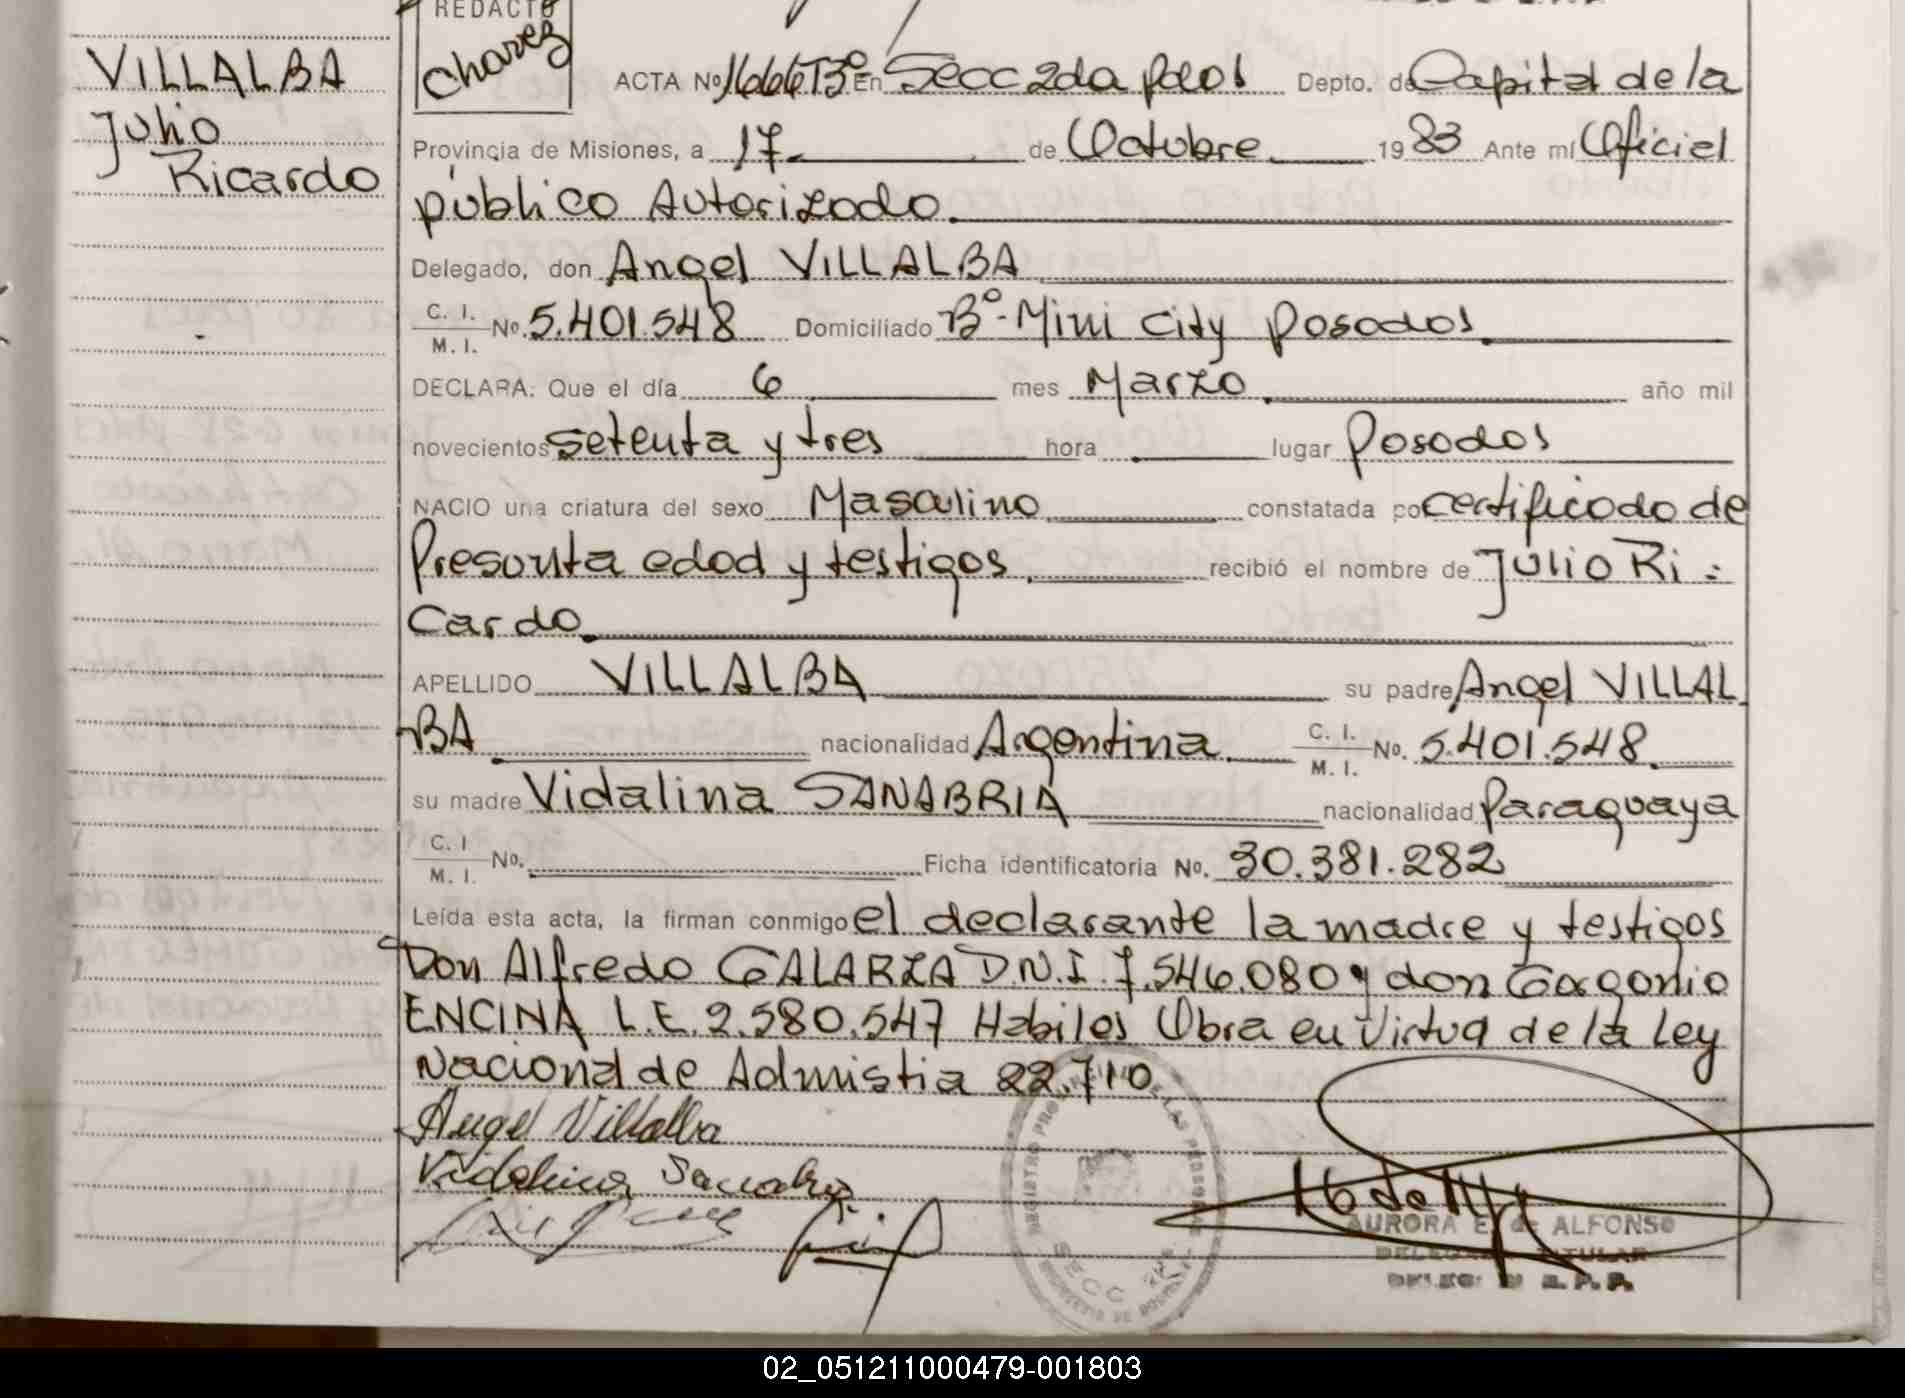 REDACTO
Chavez
VILLALBA
Julio
Ricardo
ACTA Nº 1666 Tº 3º En Secc 2da pdas Depto. de Capital de la
Provincia de Misiones, a 17 de Octubre 1983 Ante mí Oficial
público Autorizado
Delegado, don Angel VILLALBA
C. I. / M. I. No. 5.401.548 Domiciliado Bº-Mini City Posadas
DECLARA: Que el día 6 mes Marzo año mil
novecientos setenta y tres hora lugar Posadas
NACIO una criatura del sexo Masculino constatada por certificado de
Presunta edad y testigos recibió el nombre de Julio Ri=
cardo
APELLIDO VILLALBA su padre Angel VILLAL
BA nacionalidad Argentina C. I. / M. I. No. 5.401.548
su madre Vidalina SANABRIA nacionalidad Paraguaya
C. I / M. I. No. Ficha identificatoria No. 30.381.282
Leída esta acta, la firman conmigo el declarante la madre y testigos
Don Alfredo GALARZA D.N.I. 7.546.080 y don Gorgonio
ENCINA L.E. 2.580.547 Habiles Obra en Virtud de la Ley
Nacional de Admistia 22.710
Angel Villalba
Vidalina Sanabria
SECC 2da
AURORA E. de ALFONSO
DELEGADA TITULAR
02_051211000479-001803